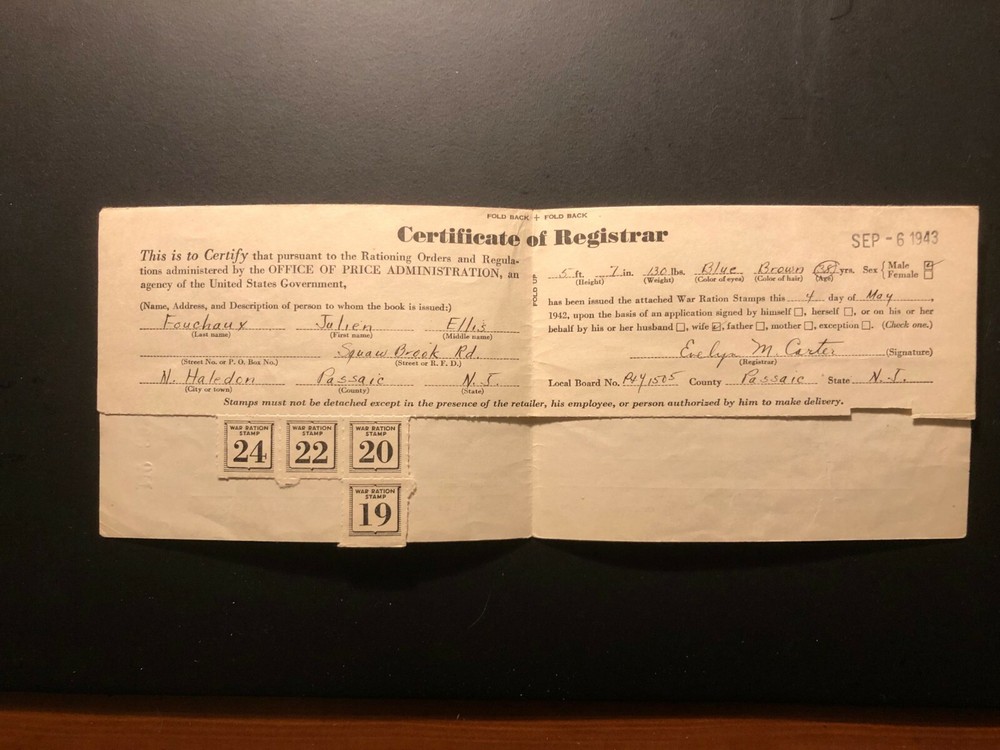 FOLD BACK + FOLD BACK
Certificate of Registrar
SEP - 6 1943
This is to Certify that pursuant to the Rationing Orders and Regula-
tions administered by the OFFICE OF PRICE ADMINISTRATION, an
agency of the United States Government,
(Name, Address, and Description of person to whom the book is issued:)
Fouchaux Julien Ellis
(Last name) (First name) (Middle name)
Squaw Brook Rd.
(Street No. or P. O. Box No.) (Street or R. F. D.)
N. Haledon Passaic N. J.
(City or town) (County) (State)
FOLD UP
5 ft. 7 in. 130 lbs. Blue Brown 38 yrs. Sex { Male
Female
(Height) (Weight) (Color of eyes) (Color of hair) (Age)
has been issued the attached War Ration Stamps this 4 day of May,
1942, upon the basis of an application signed by himself, herself, or on his or her
behalf by his or her husband, wife, father, mother, exception. (Check one.)
Evelyn M. Carter (Signature)
(Registrar)
Local Board No. County Passaic State N. J.
Stamps must not be detached except in the presence of the retailer, his employee, or person authorized by him to make delivery.
WAR RATION STAMP 24
WAR RATION STAMP 22
WAR RATION STAMP 20
WAR RATION STAMP 19